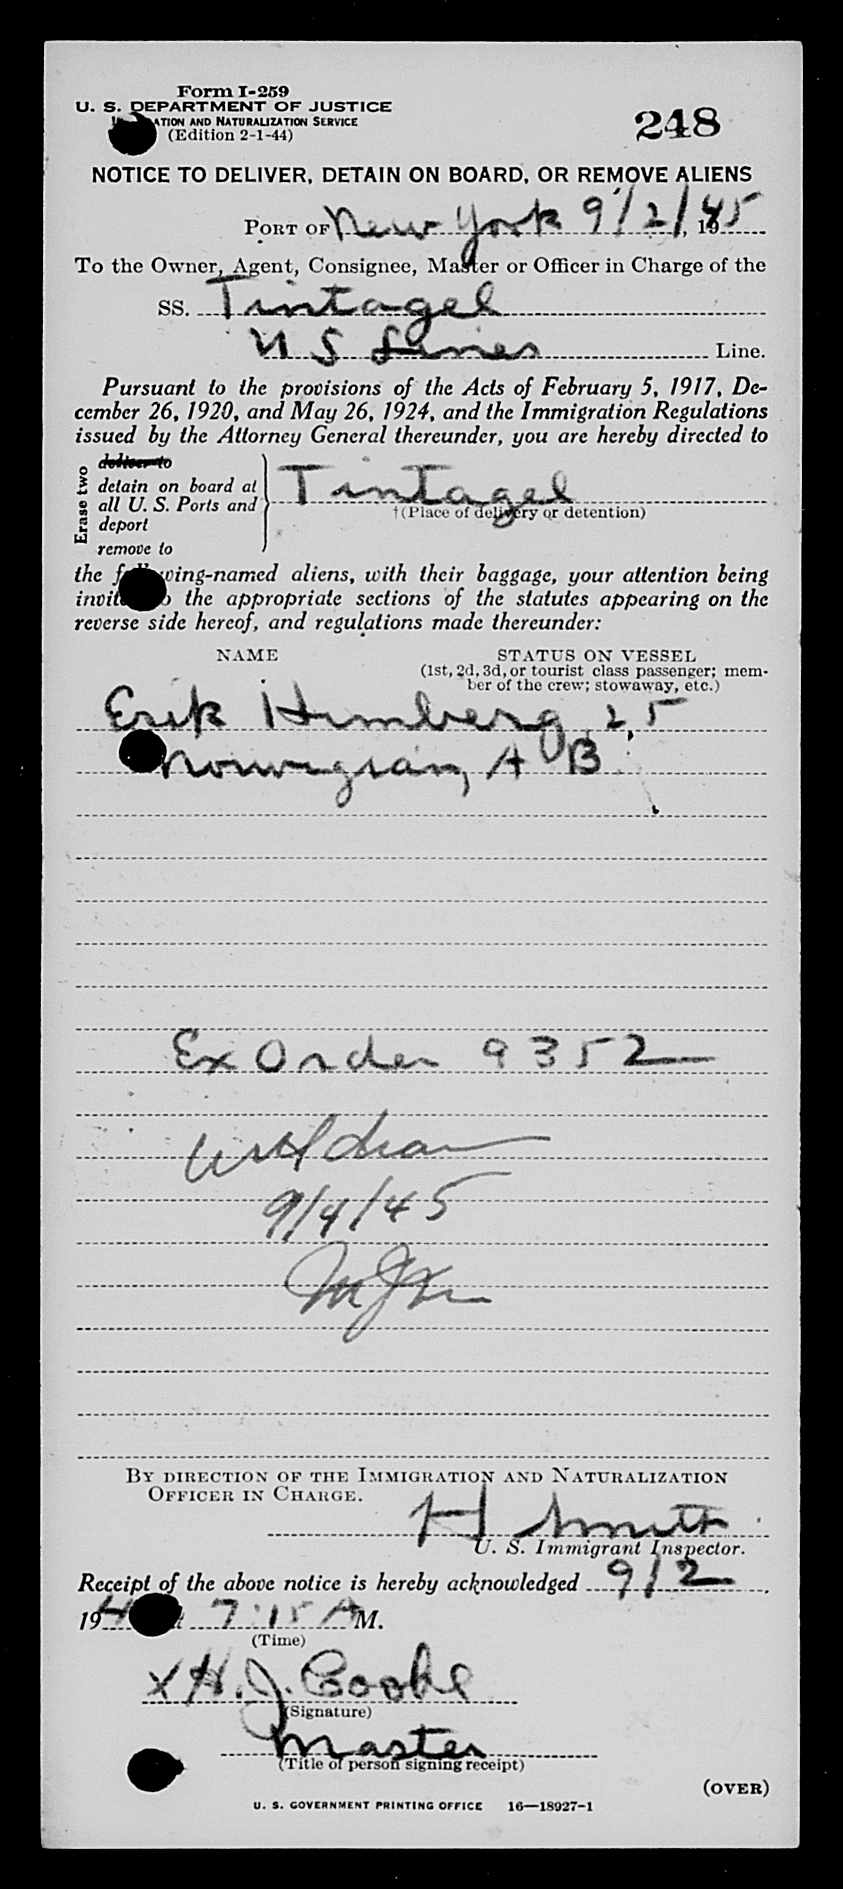 Form I-259
U. S. DEPARTMENT OF JUSTICE
ATION AND NATURALIZATION SERVICE
(Edition 2-1-44)
248
NOTICE TO DELIVER, DETAIN ON BOARD, OR REMOVE ALIENS
PORT OF New York 9/2/, 1945
To the Owner, Agent, Consignee, Master or Officer in Charge of the
SS. Tintagel
U S Lines Line.
Pursuant to the provisions of the Acts of February 5, 1917, De-
cember 26, 1920, and May 26, 1924, and the Immigration Regulations
issued by the Attorney General thereunder, you are hereby directed to
Erase two
deliver to
detain on board at
all U. S. Ports and
deport
remove to
Tintagel
†(Place of delivery or detention)
the following-named aliens, with their baggage, your attention being
invit o the appropriate sections of the statutes appearing on the
reverse side hereof, and regulations made thereunder:
NAME
STATUS ON VESSEL
(1st, 2d, 3d, or tourist class passenger; mem-
ber of the crew; stowaway, etc.)
Erik Humberg 25
Norwegian, A B
Ex Order 9352
9/4/45
BY DIRECTION OF THE IMMIGRATION AND NATURALIZATION
OFFICER IN CHARGE.
H Smith
U. S. Immigrant Inspector.
Receipt of the above notice is hereby acknowledged 9/2,
194 7:15 A M.
(Time)
x H. J. Cooke
(Signature)
Master
(Title of person signing receipt)
(OVER)
U. S. GOVERNMENT PRINTING OFFICE 16—18927-1